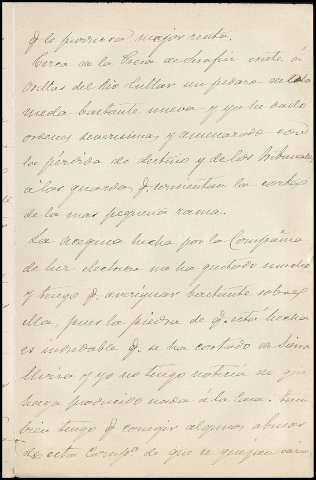 q. le produzca mayor renta.
Cerca de la Casa de Asafin existe á
orillas del Rio Cullar un pedazo de ala
meda bastante nueva y yo he dado
ordenes severisimas y amenazado con
la pérdida de destino y de los tribunales
á los guardas q. consientan la corta
de la mas pequeña rama.
La acequia hecha por la Compañia
de luz electrica no ha gustado mucho
y tengo q. averiguar bastante sobre
ella, pues la piedra de q. está hecha
es indudable q. se ha cortado en Sierra
Elvira y yo no tengo noticia de que
haya producido nada á la Casa. Tam
bien tengo q. corregir algunos abusos
de esta Compª de que se quejan varios